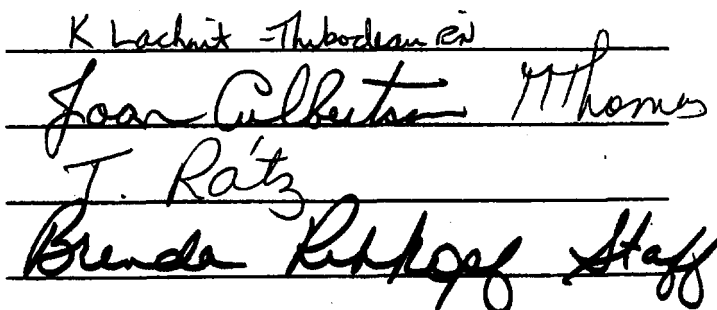 K Lachnit - Thibodeau RN
Joan Culbertson M Thomas
T. Rátz
Brenda Staff